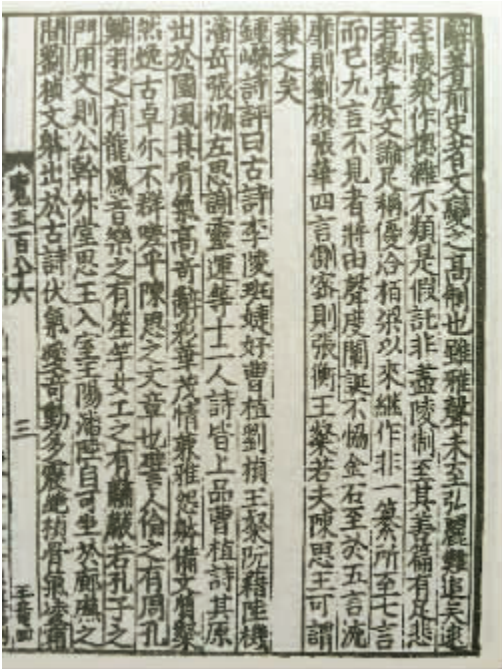 辭著前史者文變之高制也雖雅聲未至弘麗難追矣逮
李陵衆作揔雜不類是假託非盡陵制至其善篇有足悲
者摯虞文論足稱優洽栢梁以來継作非一纂所至七言
而已九言不見者將由聲度闡誕不恊金石至於五言流
靡則劉楨張華四言側密則張衡王粲若夫陳思王可謂
兼之矣
鍾嶸詩評曰古詩李陵班婕妤曹植劉楨王粲阮籍陸機
潘岳張恊左思謝靈運等十二人詩皆上品曹植詩其原
出於國風其骨氣高竒辭彩華茂情兼雅怨躰備文質粲
然逸古卓尓不群嗟乎陳思之文章也譬人倫之有周孔
鱗羽之有龍鳳音樂之有笙竽女工之有黼黻若孔子之
門用文則公幹外堂思王入室王陽潘陸自可坐於廊廡之
間劉楨文躰出於古詩伏氣愛竒動多震絶楨骨氣凌霜
三